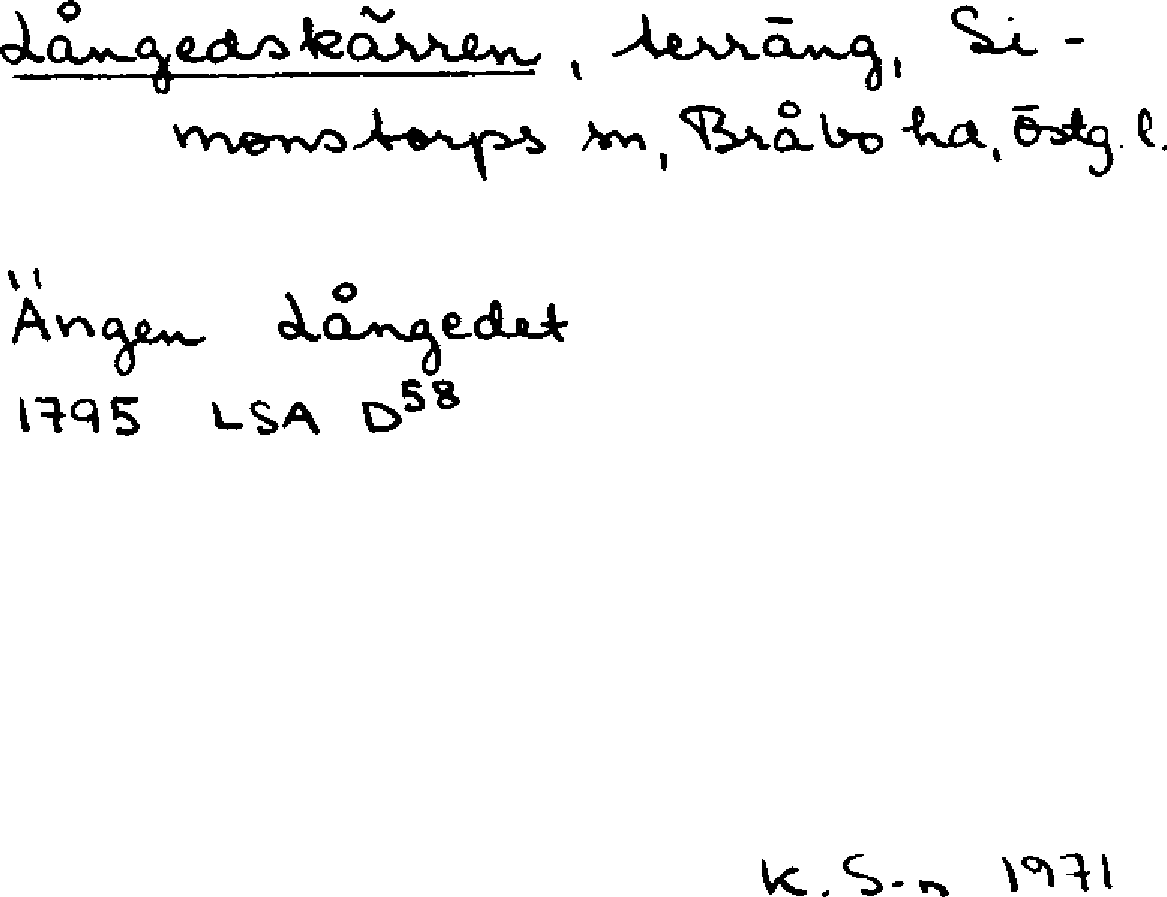 Långedskärren, terräng, Si-
monstorps sn, Bråbo hd, Östg. l.
Ängen Långedet
1795 LSA D58
K. S-n 1971